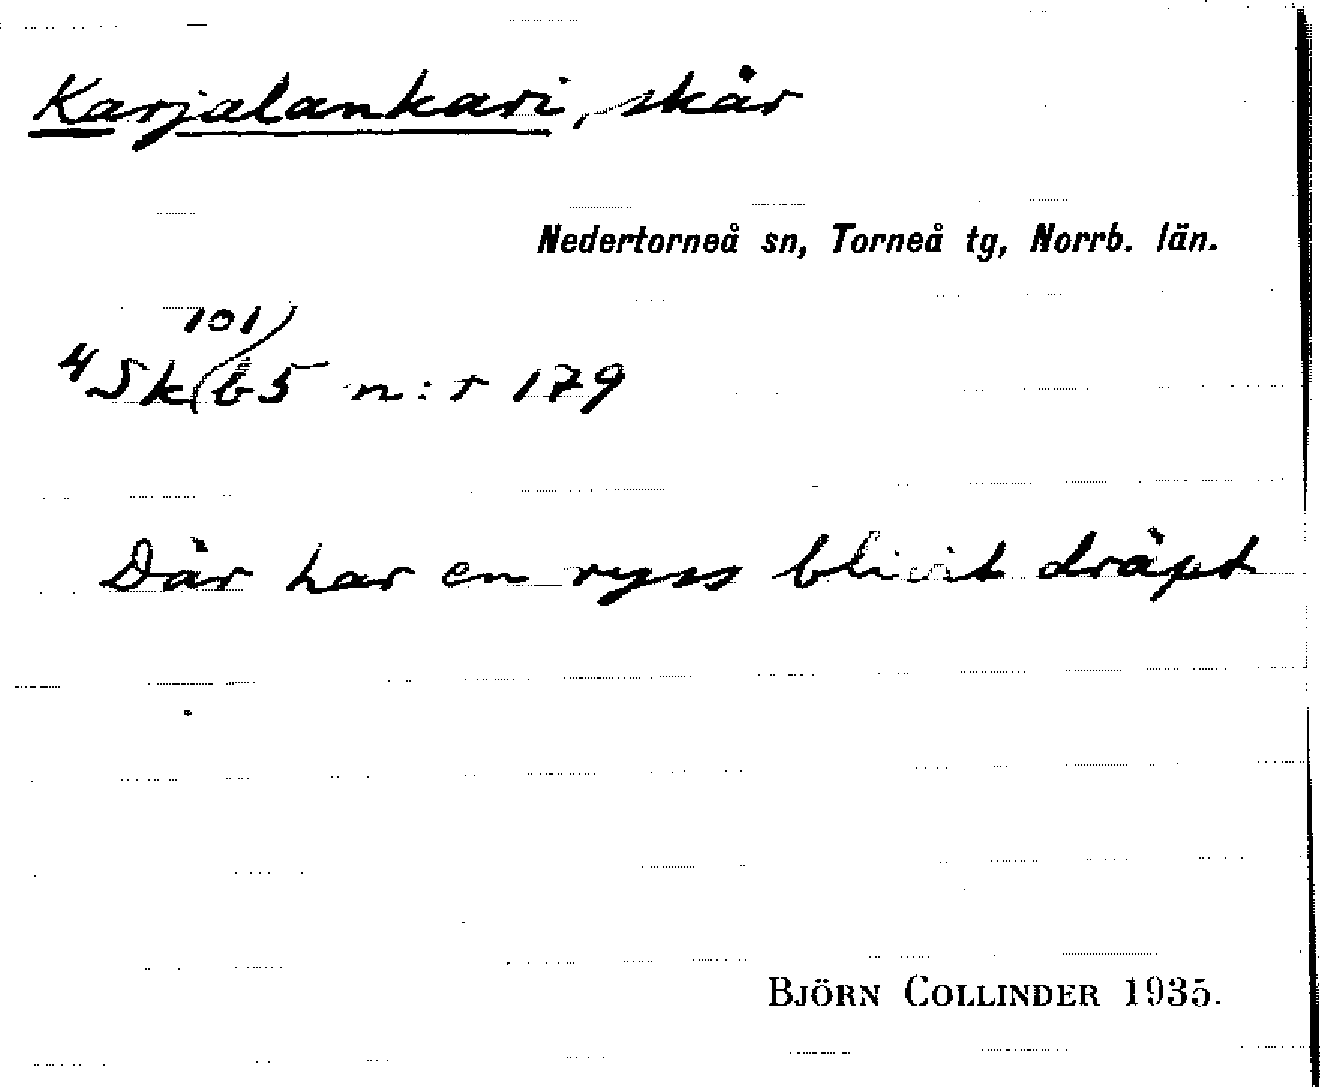 Karjalankari, skär
Nedertorneå sn, Torneå tg, Norrb. län.
101
4 Sk(b5 n:r 179
Där har en ryss blivit dräpt
BJÖRN COLLINDER 1935.